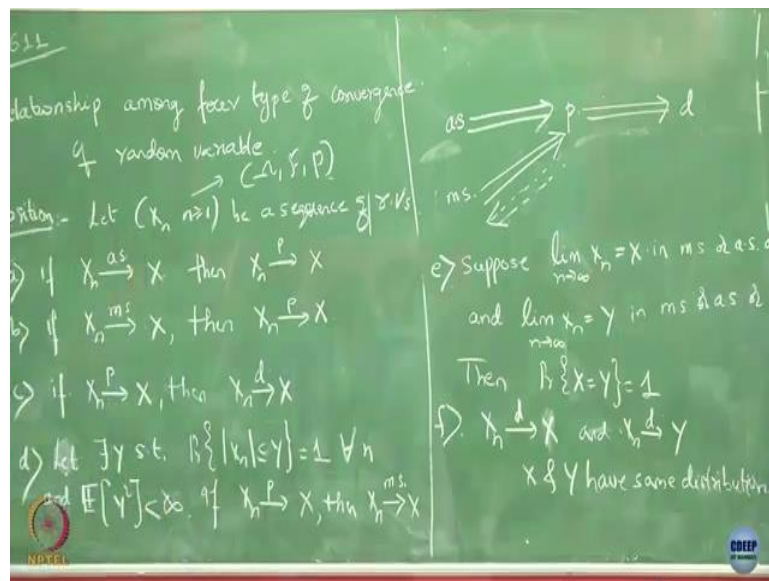 611
elationship among four type of convergence.
of random variable.
(Ω, F, P)
osition:- Let (Xn n≥1) be a sequence of r.Vs.
a) if Xn →as X then Xn →P X
b) if Xn →ms X, then Xn →P X
c) if Xn →P X, then Xn →d X
d) Let ∃ Y s.t. Pr{|Xn| ≤ Y} = 1 ∀ n
and E[Y²] < ∞. if Xn →P X, then Xn →ms. X
as ⟹ p. ⟹ d
ms.
e) Suppose lim n→∞ Xn = X in ms or a.s. or
and lim n→∞ Xn = Y in ms or as or
Then Pr{X=Y} = 1
f) Xn →d X and Xn →d Y
X & Y have same distribution
NPTEL
CDEEP
IIT BOMBAY